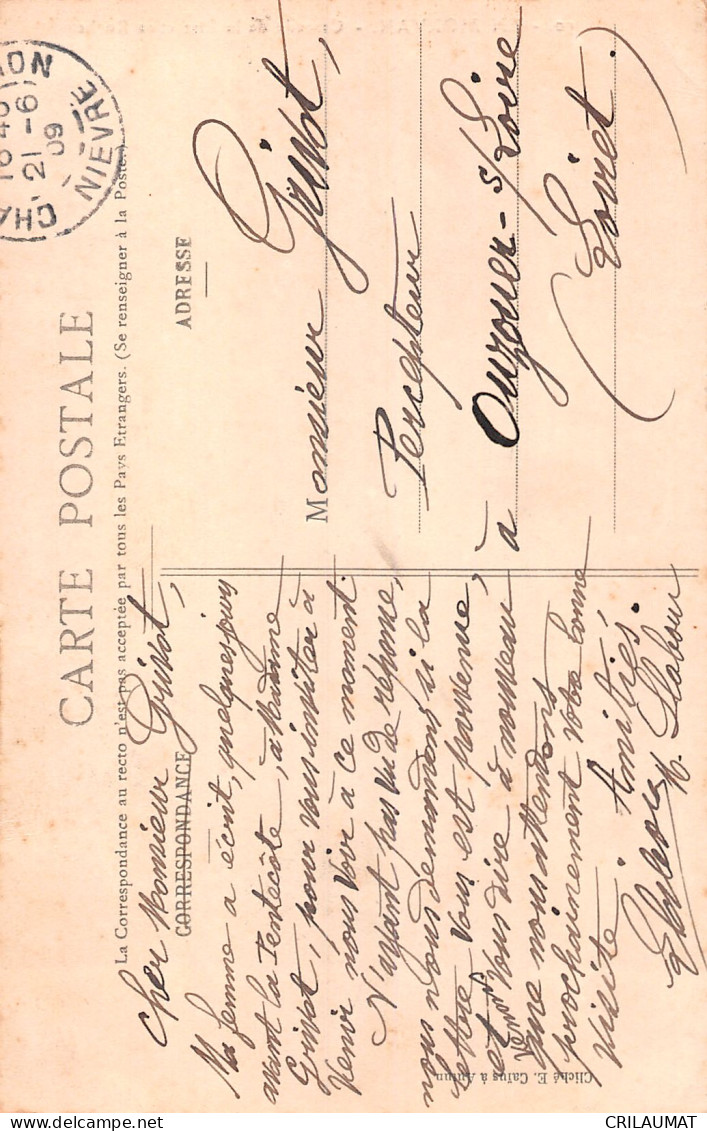 CARTE POSTALE
La Correspondance au recto n'est pas acceptée par tous les Pays Etrangers. (Se renseigner à la Poste.)
CORRESPONDANCE
Cher Monsieur Grivot,
Ma femme a écrit, quelques jours
avant la Pentecôte, à Madame
Grivot, pour vous inviter à
venir nous voir à ce moment.
N'ayant pas vu de réponse,
nous nous demandons si la
lettre vous est parvenue,
et venons vous dire à nouveau
que nous attendons
prochainement votre bonne
visite
Amitiés.
ADRESSE
Monsieur Grivot,
Percepteur
à Ouzouer-s/Loire
Loiret.
CHA
NIEVRE
21-6
09
Cliché E. Caïus à Autun
CRILAUMAT